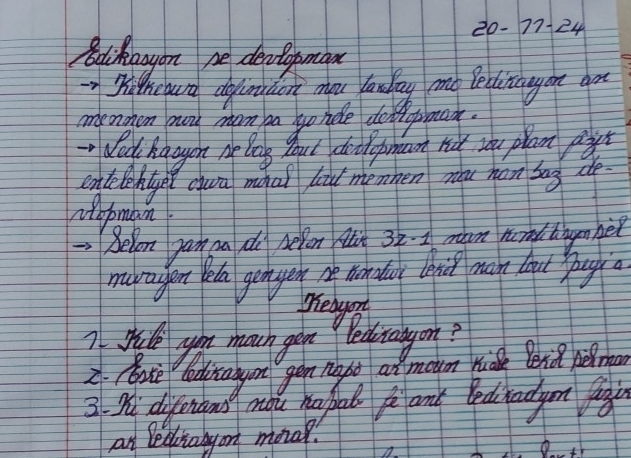 20-11-24
Edikasyon se devlopman
→ Kèlkeswa definision nou tambay mo ledikasyon an
mennen nou nan sa yo rele devlopman.
→ Ledikasyon se baz tout devlopman kit sou plan fizik
entelektyèl oswa moral tout mennen nou nan baz de-
vlopman.
→ Selon jan sa di selon Atik 32-1 nan konstitisyon sèl
mwayen leta genyen se konstwi lekòl nan tout peyi a.
Kesyon
1- Kilè yon moun gen ledikasyon?
2- Èske ledikasyon gen rapò ak moun kide lekòl sèlman
3- Ki diferans nou kapab fè ant ledikadyon fizik
ak ledikasyon moral.